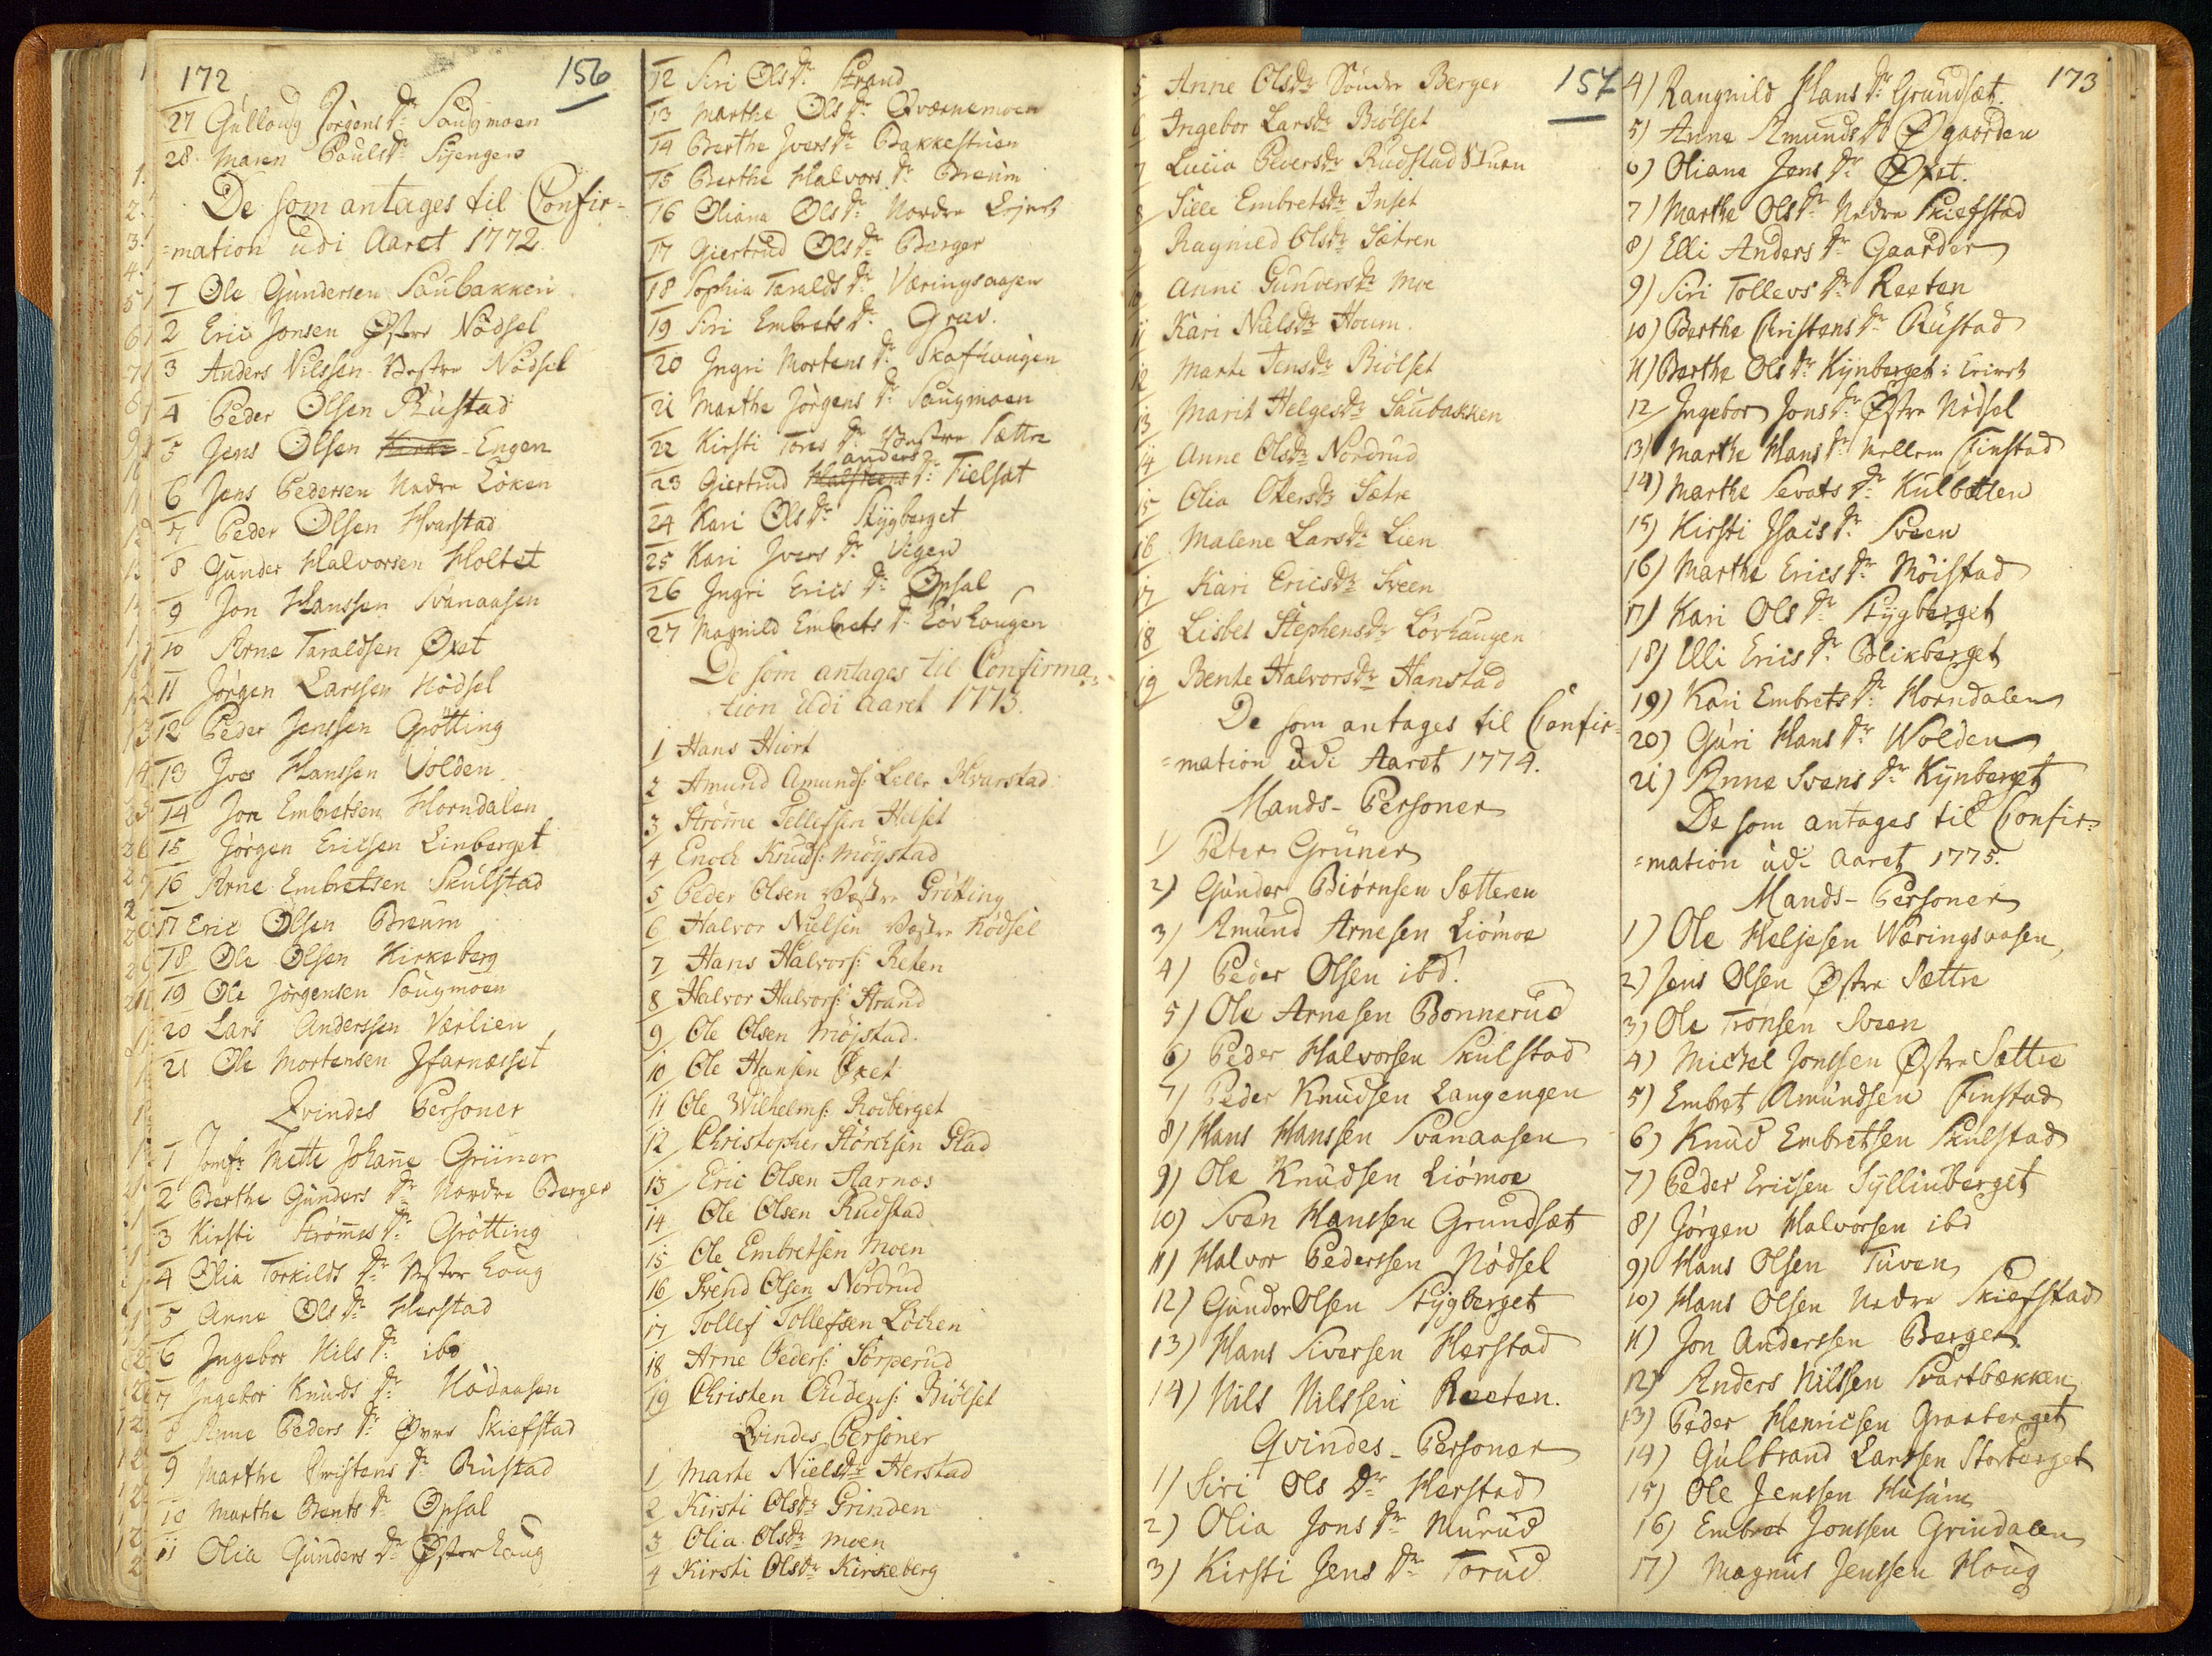 172
156
27 Gullaug Jörgens Dr: Saugmoen
28. Maren Pauls Dr:
De som antages til Confir-
=mation udi Aaret 1772.
1 Ole Gundersen Saubakken
2 Eric Jonsen Østre Nödsel
3 Anders Nilssen Vestre Nödsel
4 Peder Olsen Rustad
5 Jens Olsen Engen
6 Jens Pedersen Nedre Löken
7 Peder Olsen Hvarstad
8 Gunder Halvorsen Holtet
9 Jon Hanssen Svanaasen
10 Arne Taraldsen Øxet
11 Jörgen Larssen Nödsel
12 Peder Jenssen Grötting
13 Iver Hanssen Volden
14 Jon Embretsen Horndalen
15 Jörgen Ericsen Linberget
16 Arne Embretsen Skulstad
17 Eric Olsen Bræum
18 Ole Olsen Kirkeberg
19 Ole Jörgensen Saugmoen
20 Lars Anderssen Værlien
21 Ole Mortensen Ifarnæsset
Qvindes Personer
1 Jomfr: Mette Johane Grüner
2 Berthe Gunders Dr: Nordre Berger
3 Kirsti Strömmes Dr: Grötting
4 Olia Torkilds Dr: Vesterhaug
5 Anne Ols Dr: Herstad
6 Ingebor Nils Dr: ibd
7 Ingebor Knuds Dr: Nödaasen
8 Anne Peders Dr: Øvre Skiefstad
9 Marthe Cristens Dr: Rustad
10 Marthe Bents Dr: Opsal
11 Olia Gunders Dr: Østerhaug
12 Siri Ols Dr: Strand
13 Marthe Ols Dr: Qværnemoen
14 Berthe Ivers Dr: Bakkestuen
15 Berthe Halvors Dr: Bræum
16 Oliana Ols Dr: Nordre
17 Giertrud Ols Dr: Berger
18 Sophia Taralds Dr: Væringsaasen
19 Siri Embrets Dr: Grav.
20 Ingri Mortens Dr: Skafhaugen
21 Marthe Jörgens Dr: Saugmoen
22 Kirsti Tores Dr: Vestre Sættre
anders
23 Giertrud Halsteens Dr: Fielsæt
24 Kari Ols Dr: Stygberget
25 Kari Ivers Dr: Vigen
26 Ingri Erics Dr: Opsal
27 Magnild Embrets Dr: Lövhaugen
De som antages til Confirma=
tion udi aaret 1773.
1 Hans Hiort
2 Amund Amunds: Lelle Hvarstad
3 Ströme Tellefsen Helset
4 Enoch Knuds: Möystad
5 Peder Olsen Vestre Grötting
6 Halvor Nielsen Vestre Nödsel
7 Hans Halvors: Reten
8 Halvor Halvors: Strand
9 Ole Olsen Möjstad.
10 Ole Hansen Øxet
11 Ole Wilhelms: Rodberget
12 Christopher Störchsen Stad
13 Eric Olsen Aarnos
14 Ole Olsen Rudstad
15 Ole Embretsen Moen
16 Svend Olsen Nordrud
17 Tollef Tollefsen Löchen
18 Arne Peders: Sörperud
19 Christen Audens: Biölset
Qvindes Personer
1 Marte Nielsdr Herstad
2 Kirsti Olsdr Grinden
3 Olia Olsdr Moen
4 Kirsti Olsdr Kirkeberg
157
5 Anne Olsdr Söndre Berger
6 Ingebor Larsdr Biölset
7 Lucia Pedersdr Rudstad
8 Sille Embretsdr Inset
9 Ragnild Olsdr Sætren
10 Anne Gundersdr Moe
11 Kari Nielsdr Houm.
12 Marte Jensdr Biölset
13 Marit Helgesdr Saubakken
14 Anne Olsdr Nordrud
15 Olia Olsdr Sætre
16 Malene Larsdr Lien
17 Kari Ericsdr Sveen
18 Lisbet Stephensdr Lövhaugen
19 Bente Halvorsdr Hanstad
De som antages til Confir=
=mation udi Aaret 1774.
Mands-Personer
1) Peter Grüner
2) Gunder Biörnsen Sætteren
3) Amund Arnesen Liömoe
4) Peder Olsen ibd.
5) Ole Arnesen Bonnerud
6) Peder Halvorsen Skulstad
7) Peder Knudsen Langengen
8) Hans Hanssen Svanaasen
9) Ole Knudsen Liömoe
10) Sven Hanssen Grundsæt
11) Halvor Pederssen Nödsel
12) Gunder Olsen Stygberget
13) Hans Siversen Herstad
14) Nils Nilssen Reeten.
Qvindes-Personer
1) Siri Ols Dr Herstad
2) Olia Jons Dr Murud
3) Kirsti Jens Dr Torud
173
4) Raugnild Hans Dr: Grundsæt.
5) Anne Amunds Dr Øgaarden
6) Oliana Jens Dr: Øxet.
7) Marthe Ols Dr: Nedre Skiefstad
8) Elli Anders Dr: Gaarder
9) Siri Tollevs Dr: Reeten
10) Berthe Cristens Dr: Rustad
11) Berthe Ols Dr: Kynberget:
12 Ingebor Jons Dr: Østre Nödsel
13) Marthe Hans Dr: Mellem Finstad
14) Marthe Sevats Dr: Kulbotten
15) Kirsti Isacs Dr: Sveen
16) Marthe Erics Dr: Möistad
17) Kari Ols Dr: Stygberget
18) Elli Erics Dr: Blikberget
19) Kari Embrets Dr: Horndalen
20) Guri Hans Dr: Wolden
21) Anne Svens Dr: Kynberget
De som antages til Confir=
=mation udi aaret 1775.
Mands-Personer
1) Ole Heljesen Væringsaasen
2) Jens Olsen Østre Sættre
3) Ole Tronsen Sveen
4) Mickel Jonssen Østre Sættre
5) Embret Amundsen Finstad
6) Knud Embretsen Skulstad
7) Peder Ericsen Syllinberget
8) Jörgen Halvorsen ibd
9) Hans Olsen Tuven
10) Hans Olsen Nedre Skiefstad
11) Jon Anderssen Berger
12) Anders Nilssen Svartbækken
13) Peder Henricsen Graaberget
14) Gulbrand Larssen Storberget
15) Ole Jenssen Husum
16) Embret Jonssen Grindalen
17) Magnus Jenssen Houg